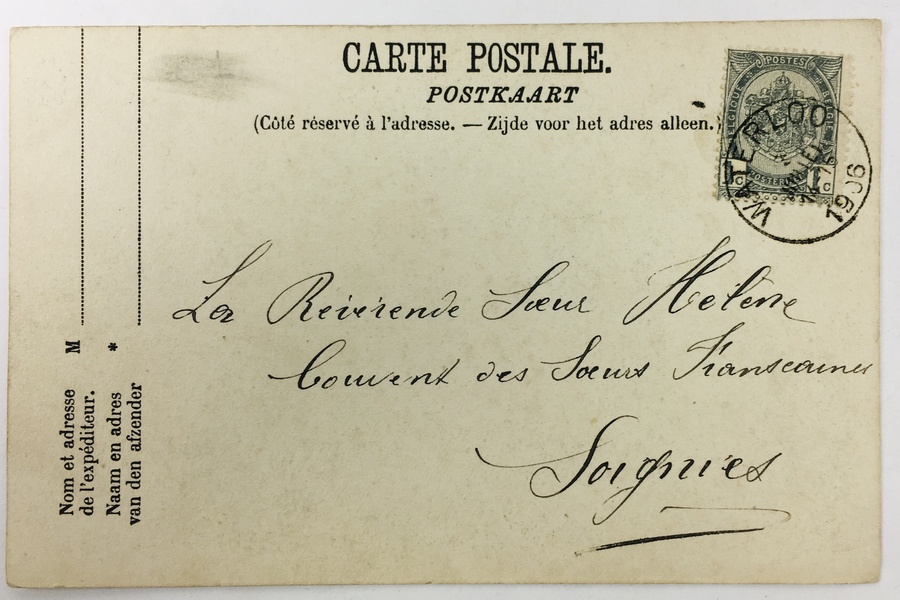 CARTE POSTALE.
POSTKAART
(Côté réservé à l'adresse. — Zijde voor het adres alleen.)
POSTES
BELGIQUE
BELGIË
1 c
1 c
WATERLOO
1906
La Révérende Sœur Hélène
Couvent des Sœurs Franscaines
Soignies
Nom et adresse
de l'expéditeur.
M
Naam en adres
van den afzender
*